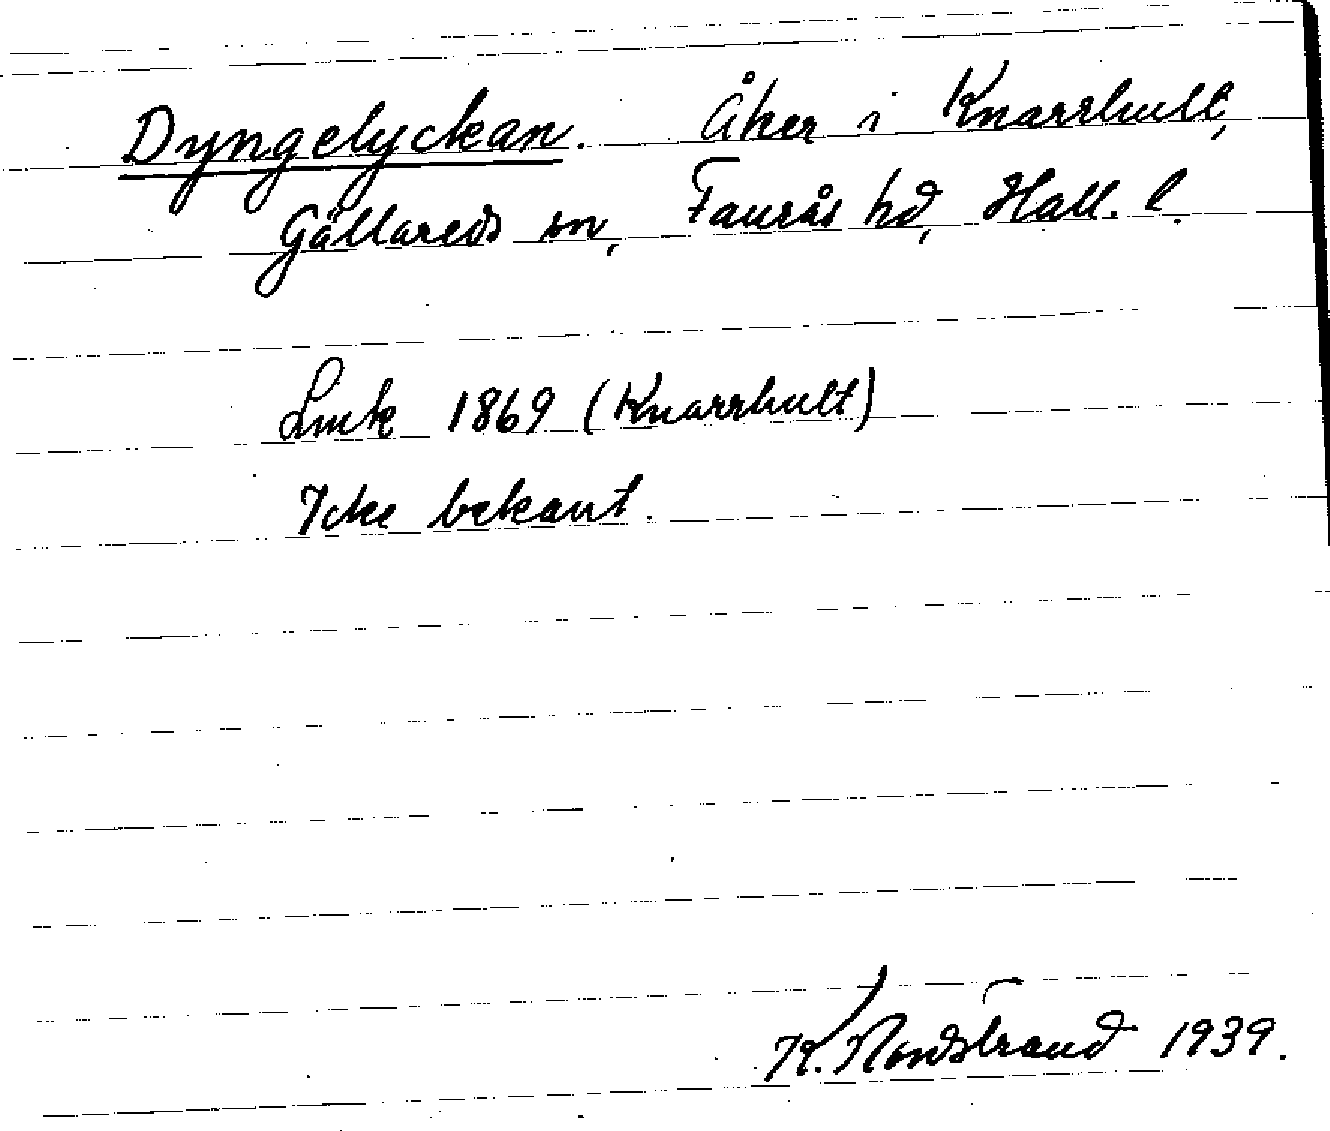 Dyngelyckan. Åker i Knarrhult,
Gällareds sn, Faurås hd, Hall. l.
Lmtk 1869 (Knarrhult)
Icke bekant.
K. Nordstrand 1939.